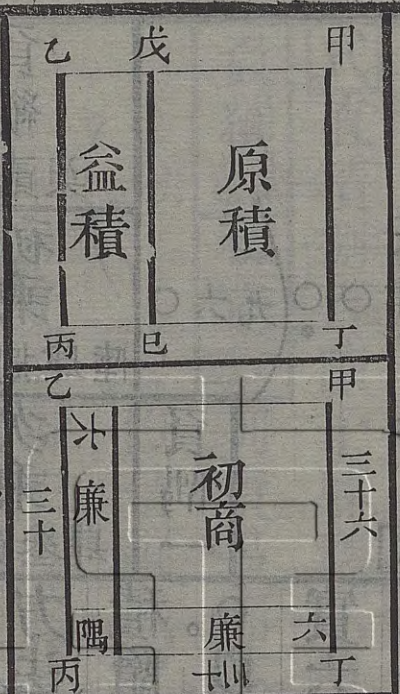 甲
戊
乙
原積
益積
丁
巳
丙
甲
乙
三十六
初商
六
廉
三十
六
廉
三十
隅
丁
丙